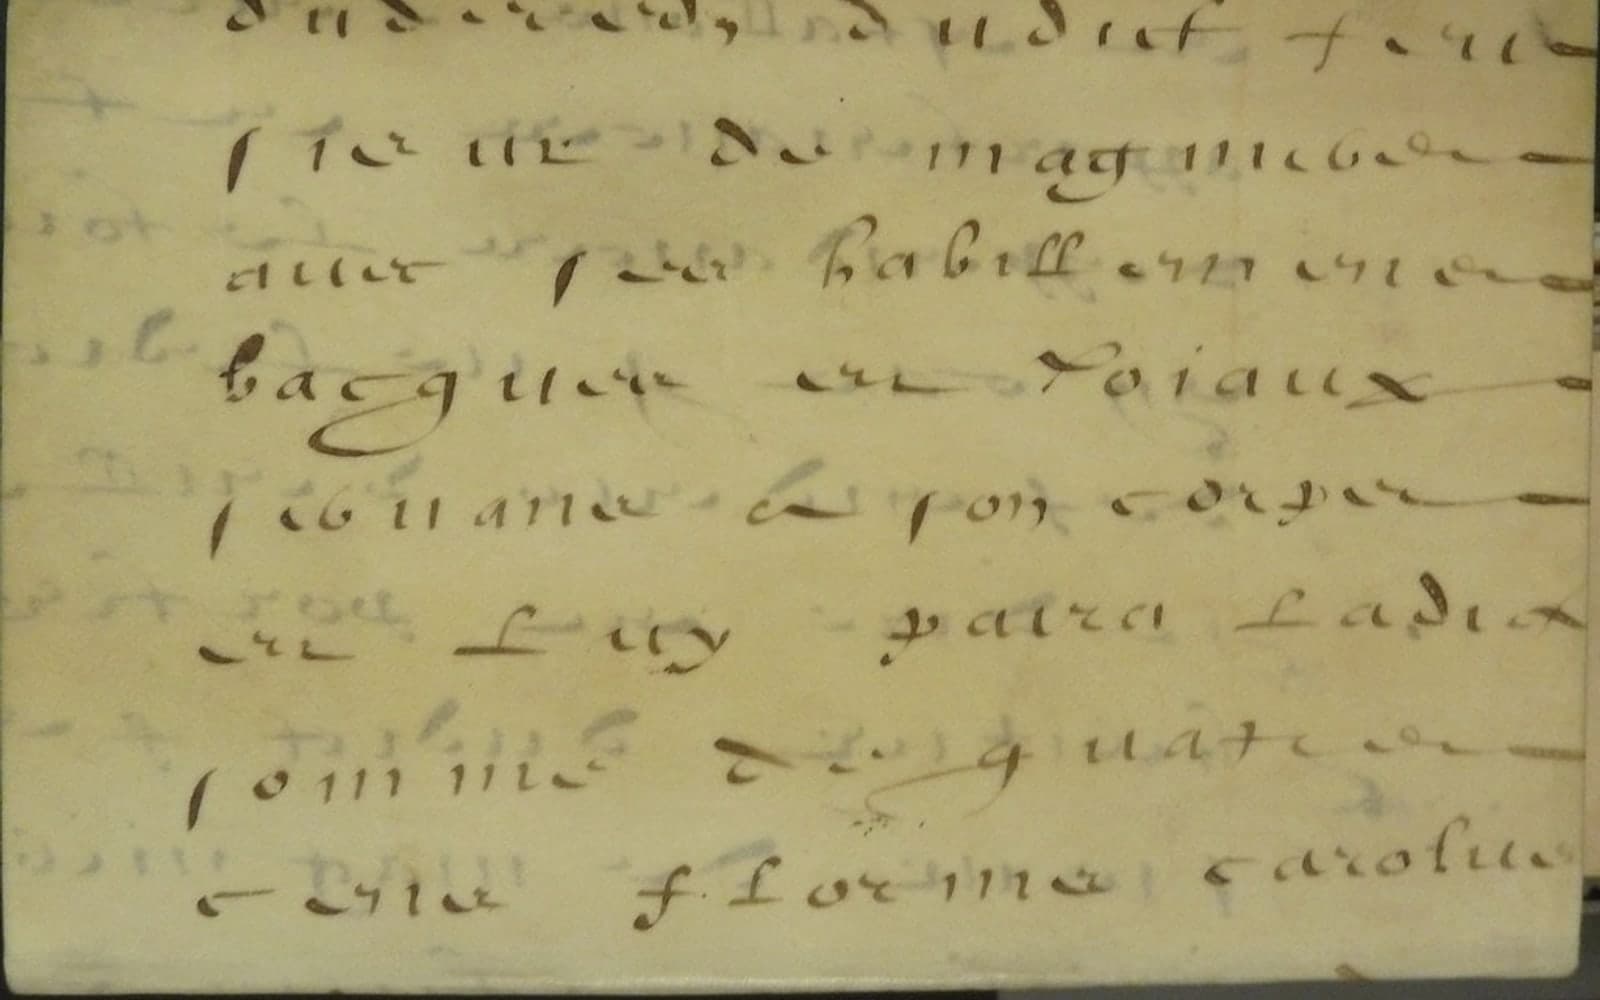 dudict feru
sieur de magnicber
avec ses habillemens
bacques et Joiaux
servans a son corps
et luy paira ladict
somme de quatre
cens florins carolus